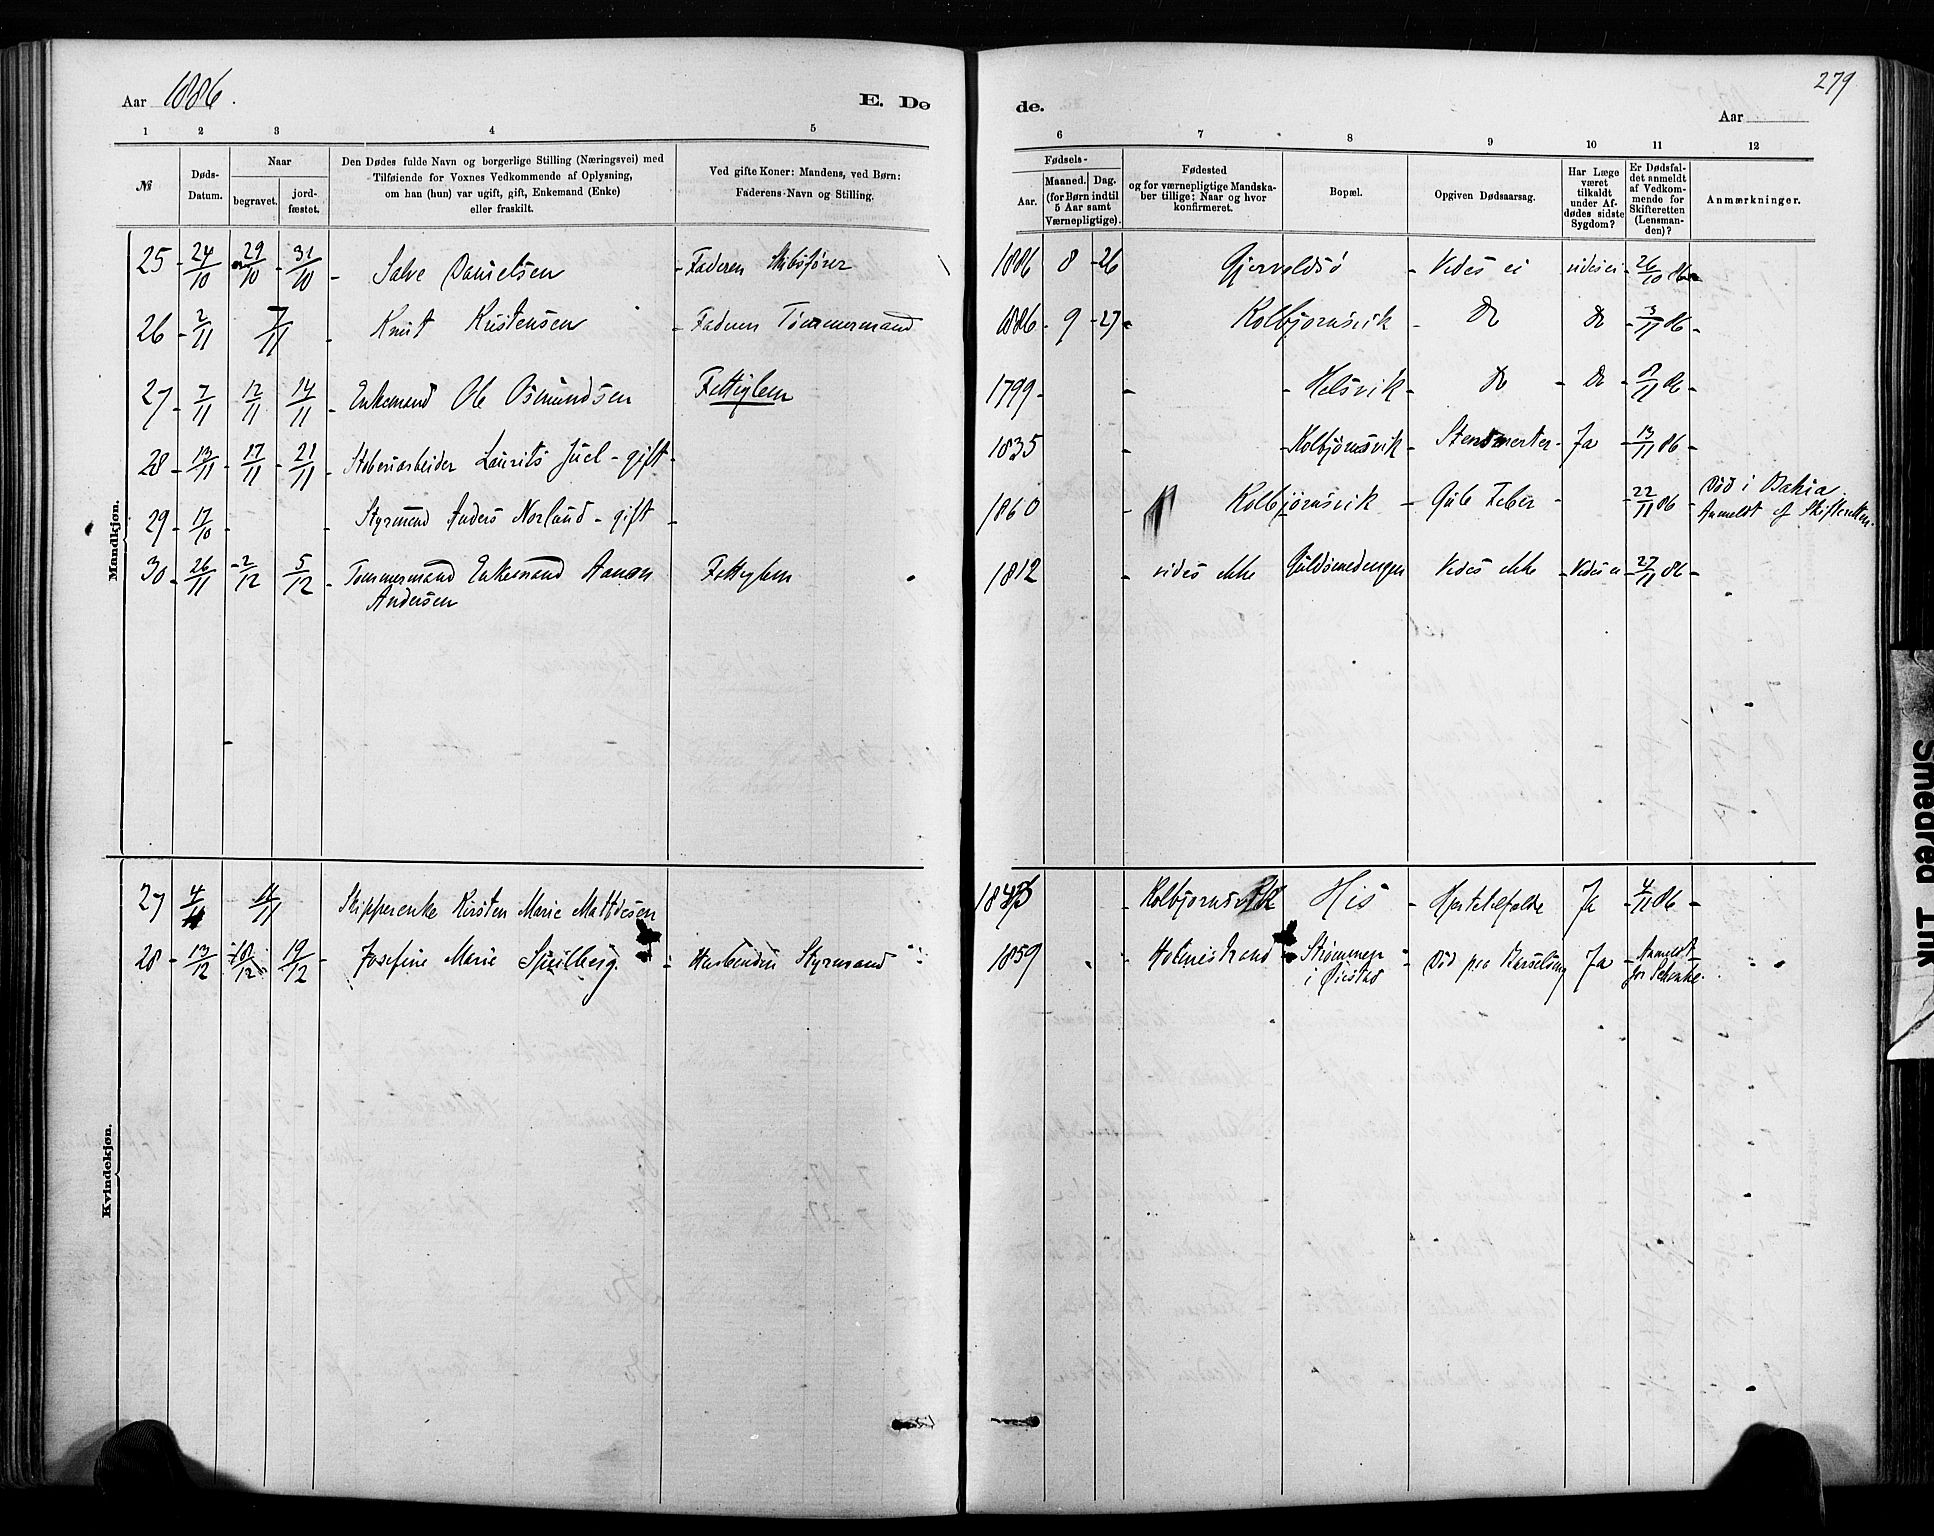 Aar 1886.
E. Dø
de.
279
Aar
1 2 3 4 5
6 7 8 9 10 11 12
№
Døds-
Datum.
Naar
begravet.
jord-
fæstet.
Den Dødes fulde Navn og borgerlige Stilling (Næringsvei) med
Tilføiende for Voxnes Vedkommende af Oplysning,
om han (hun) var ugift, gift, Enkemand (Enke)
eller fraskilt.
Ved gifte Koner: Mandens, ved Børn:
Faderens Navn og Stilling.
Fødsels-
Aar.
Maaned.
Dag.
(for Børn indtil
5 Aar samt
Værnepligtige).
Fødested
og for værnepligtige Mandska-
ber tillige: Naar og hvor
konfirmeret.
Bopæl.
Opgiven Dødsaarsag.
Har Læge
været
tilkaldt
under Af-
dødes sidste
Sygdom?
Er Dødsfal-
det anmeldt
af Vedkom-
mende for
Skifteretten
(Lensman-
den)?
Anmærkninger.
Mandkjøn.
25 - 24/10 29/10 - 31/10 - Salve Danielsen - Faderen Skibsfører 1886 8 - 26 Gjervoldsø - Vides ei vides ei - 26/10 86 -
26 - 2/11 7/11 - Knut Kristensen - Faderen Tømmermand 1886 - 9 - 27 - Kolbjørnsvik - Do Do - 3/11 86 -
27 - 7/11 12/11 14/11 - Enkemand Ole Osmundsen Fattiglem 1799 - - Helsvik - Do - Do - 86 -
28 - 13/11 - 17/11 - 21/11 - Laurits Juel - gift - 1835 - Kolbjørnsvik - Stensmerter - Ja - 13/11 86 -
29 - 17/10 - - Styrmand Anders Norlund - gift - 1860 - Kolbjørnsvik - Gule Feber - 22/11 86 - Død i Bahia
Anmeldt af Skifteretten.
30 - 26/11 - 2/12 5/12 - Tømmermand Enkemand Aanon Fattiglem 1812 - vides ikke Guldsmedengen Vides ikke - Vides ei - 27/11 86 -
Andersen
Kvindekjøn.
27 4/11 11/11 Skipperenke Kirsten Marie Mathisen - Kolbjørnsvik His - Hjertelidelse Ja - 4/11 86 -
28 - 13/12 - 18/12 19/12 - Josefine Marie - Husbonden Styrmand 1859 - Holmestrand - Strømmen - Død paa Barselseng Ja - Anmeldt
i Øiestad
Smeared Ink